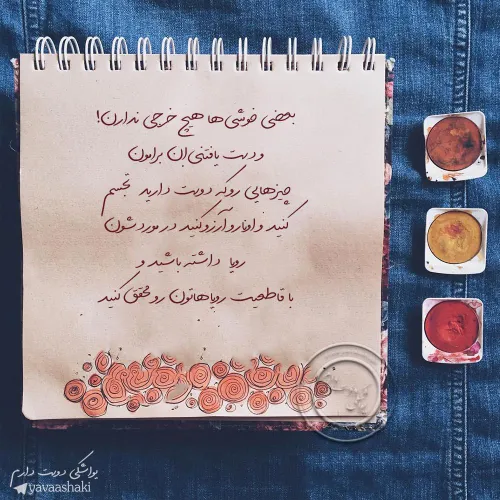 بعضی خوشی ها هیچ خرجی ندارن!
و دست یافتنی ان برامون
چیزهایی رو که دوست دارید تجسم
کنید و اونارو آرزو کنید در موردشون
رویا داشته باشید و
با قاطعیت رویاهاتون رو محقق کنید
یواشکی دوست دارم
yavaashaki